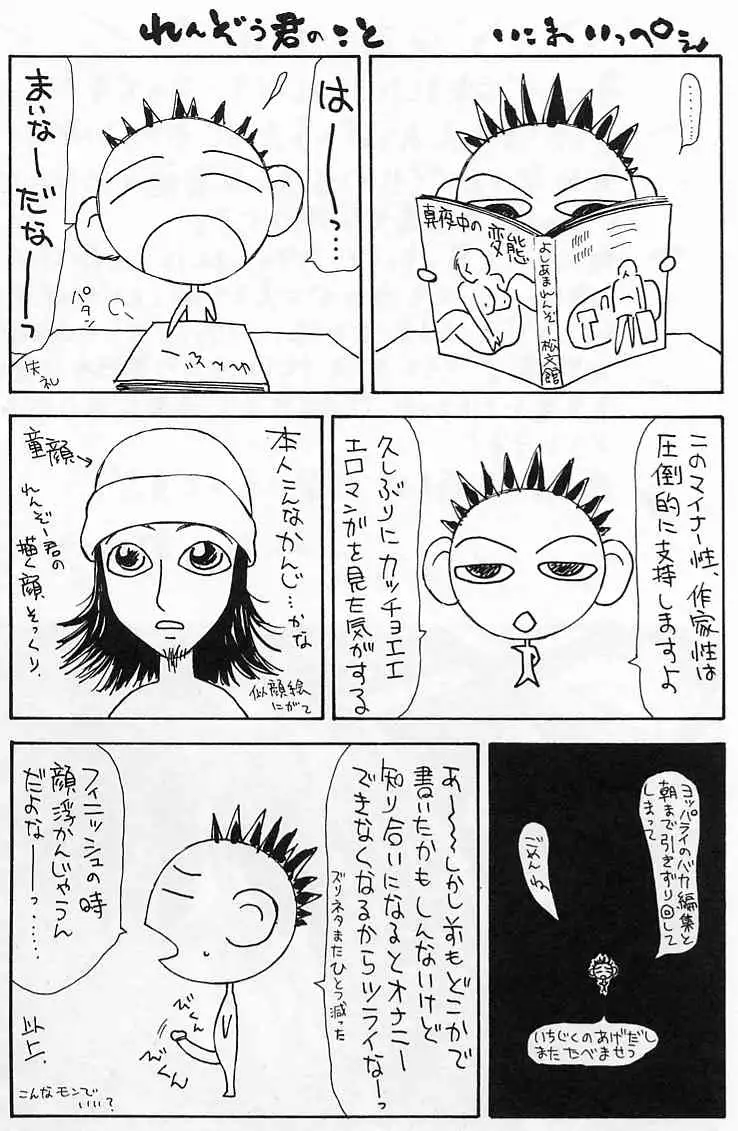 れんぞう君のこと
いこまいっぺい
………
真夜中の
変態
よしあまれんぞー
松文館
はーーっ…
まいなーだなーーっ
パタン
失礼
このマイナー性、作家性は
圧倒的に支持しますよ
久しぶりにカッチョエエ
エロマンガを見た気がする
本人こんなかんじ…かな
童顔→
れんぞー君の
描く顔そっくり。
似顔絵
にがて
ヨッパライのバカ編集と
朝まで引きずり回して
しまって
ごめんね
いちじくのあげだし
またたべませう
あ〜〜〜しかし前もどこかで
書いたかもしんないけど
知り合いになるとオナニー
できなくなるからツライなーっ
ズリネタまたひとつ減った
フィニッシュの時
顔浮かんじゃうん
だよなーーっ……
びくん
びくん
以上.
こんなモンで
いい?